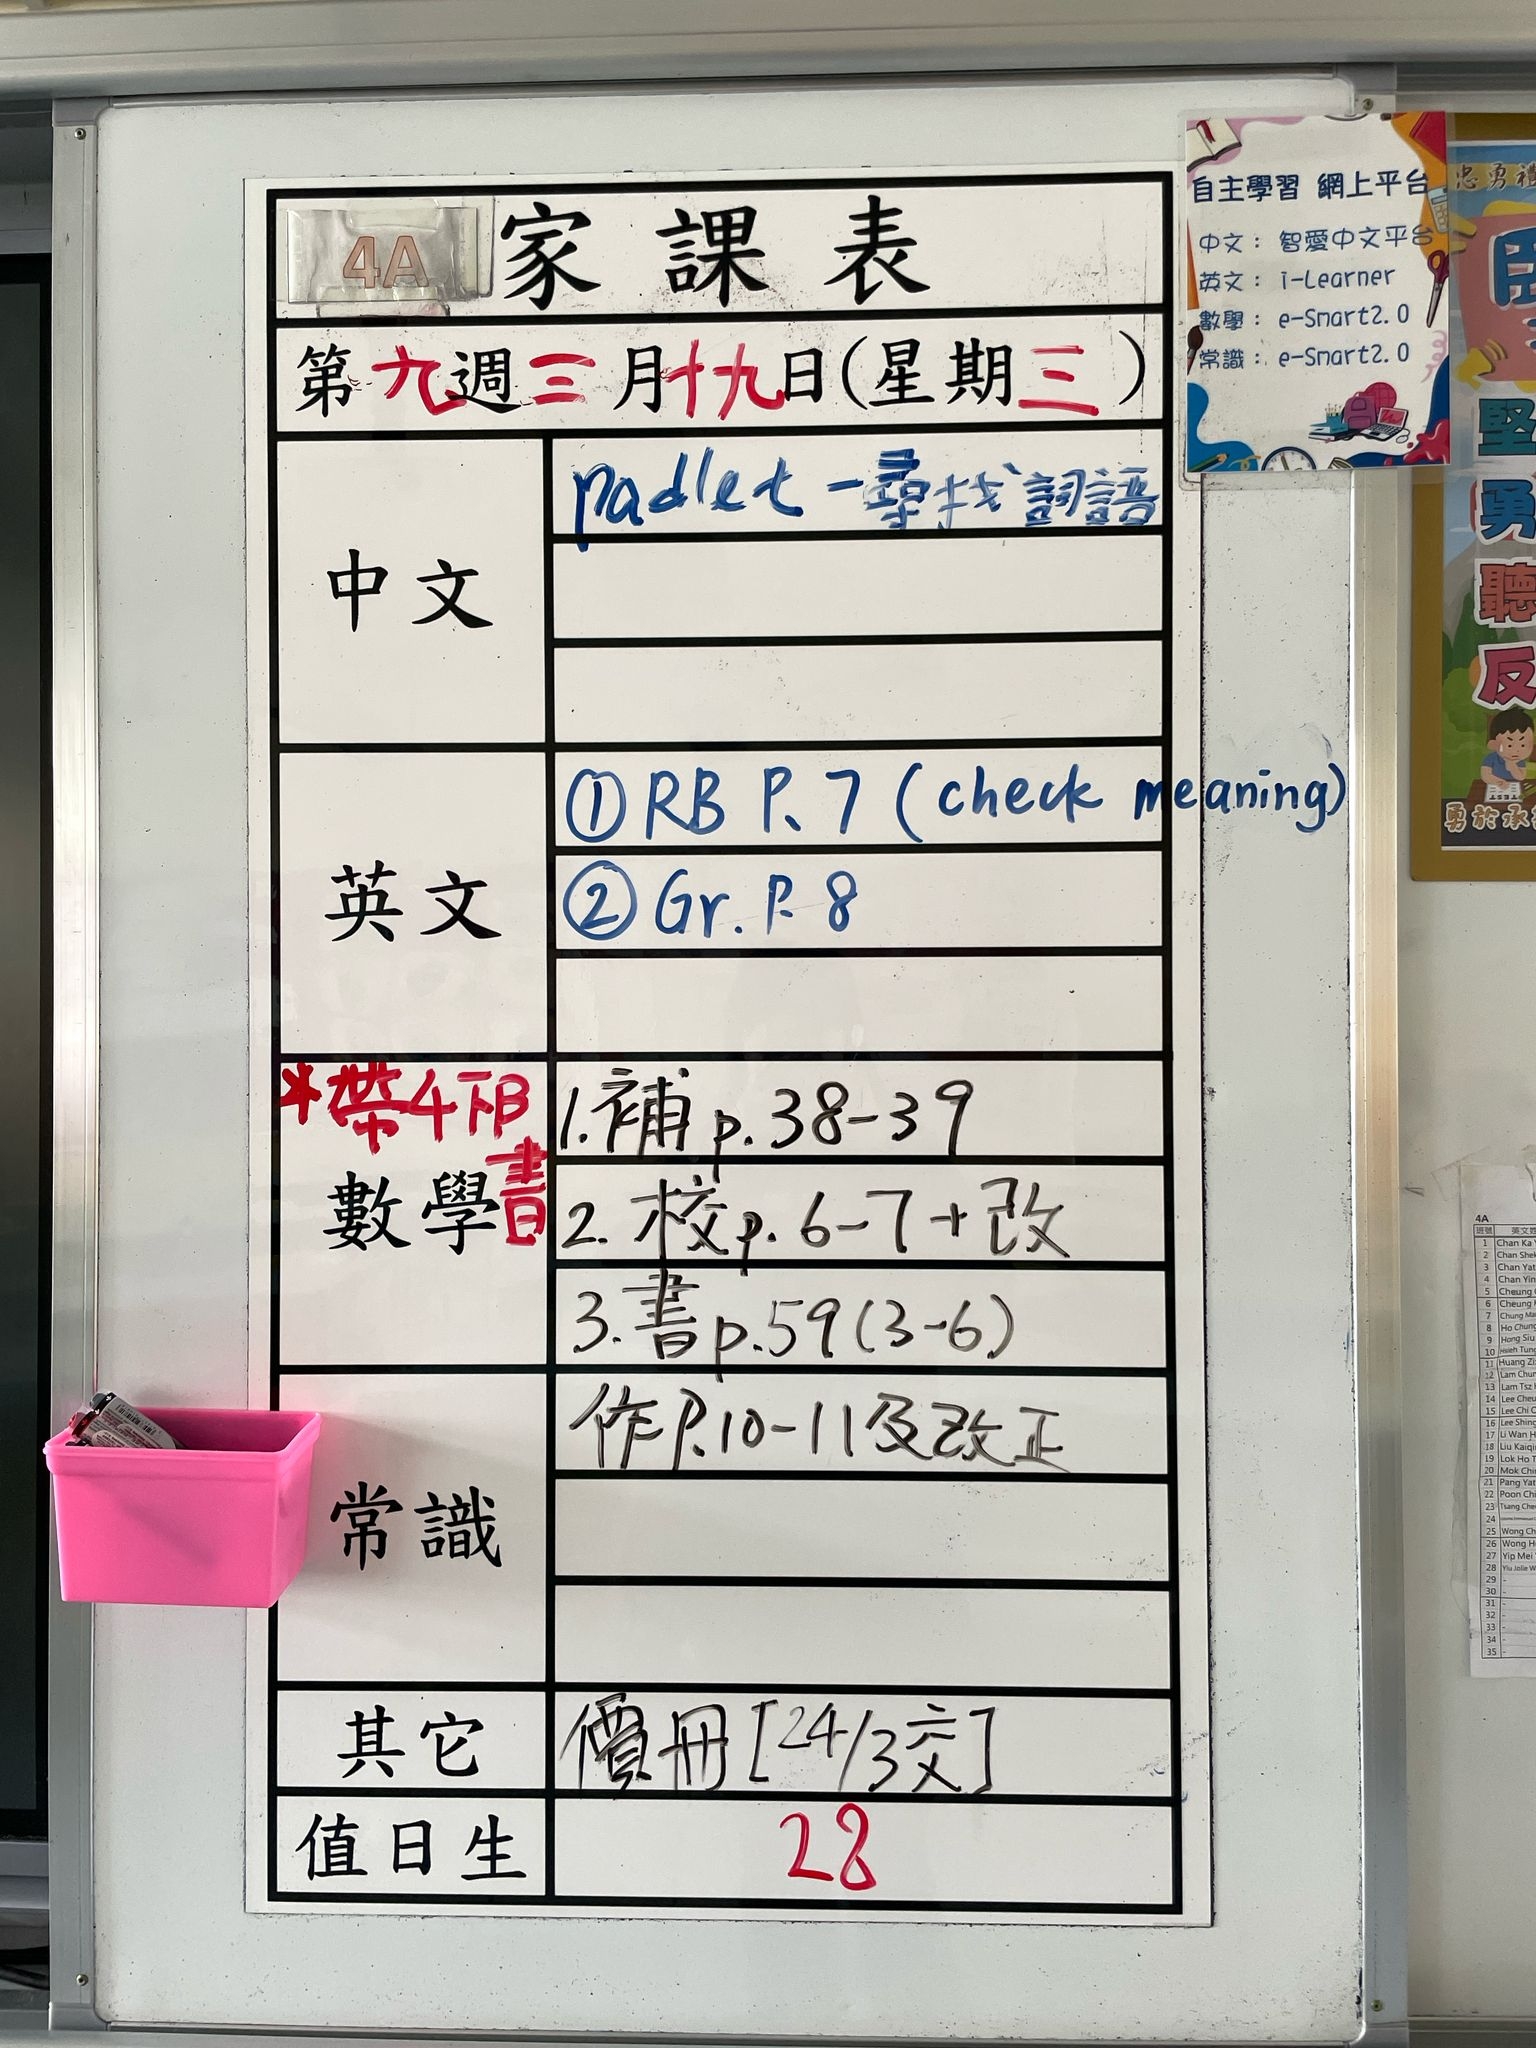 4A 家課表
第九週三月十九日(星期三)
中文
padlet - 尋找詞語
英文
① RB P.7 (check meaning)
② Gr. P.8
*帶4下B書
數學
1. 補 p.38-39
2. 校 p.6-7+改
3. 書 p.59(3-6)
常識
作 P.10-11及改正
其它
價冊 [24/3交]
值日生
28
自主學習 網上平台
中文: 智愛中文平台
英文: i-Learner
數學: e-Smart2.0
常識: e-Smart2.0
忠勇禮
堅
勇
聽
反
勇於承
4A
班號 英文姓
1 Chan Ka
2 Chan Shek
3 Chan Yat
4 Chan Yin
5 Cheung
6 Cheung
7 Chung
8 Ho Chung
9 Hong Siu
10 Hsieh Tung
11 Huang Zi
12 Lam Chun
13 Lam Tsz
14 Lee Cheu
15 Lee Chi
16 Lee Shing
17 Li Wan
18 Liu Kaiqi
19 Lok Ho
20 Mok Chi
21 Pang Yat
22 Poon Chi
23 Tsang
24
25 Wong
26 Wong
27 Yip Mei
28 Yiu Jolie
29 -
30 -
31 -
32 -
33 -
34 -
35 -